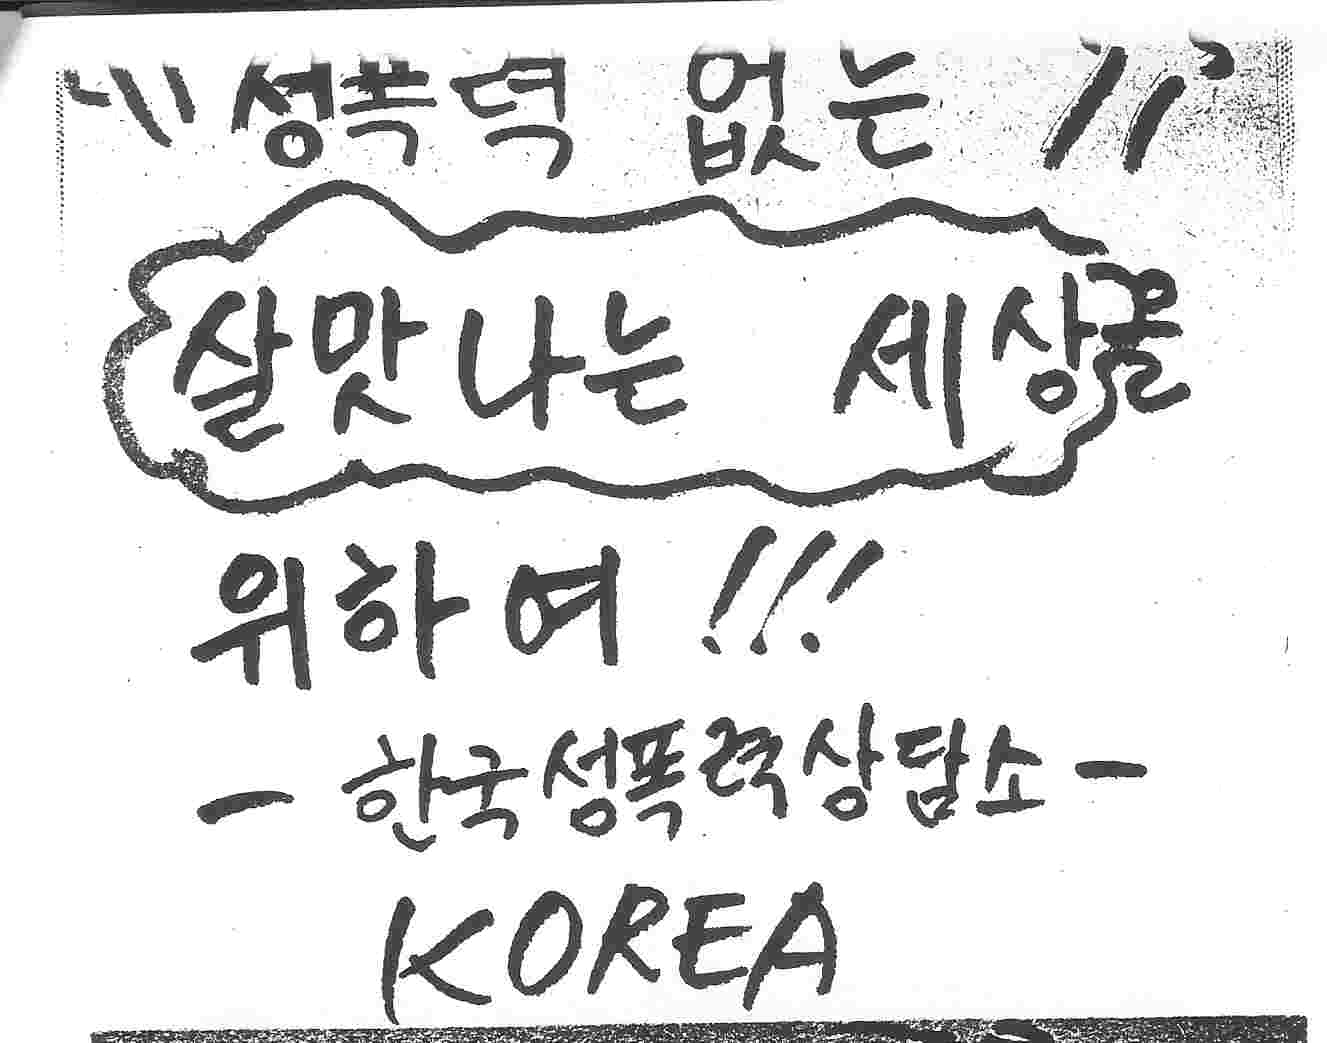 "성폭력 없는"
살맛나는 세상을
위하여 !!!
- 한국성폭력상담소 -
KOREA